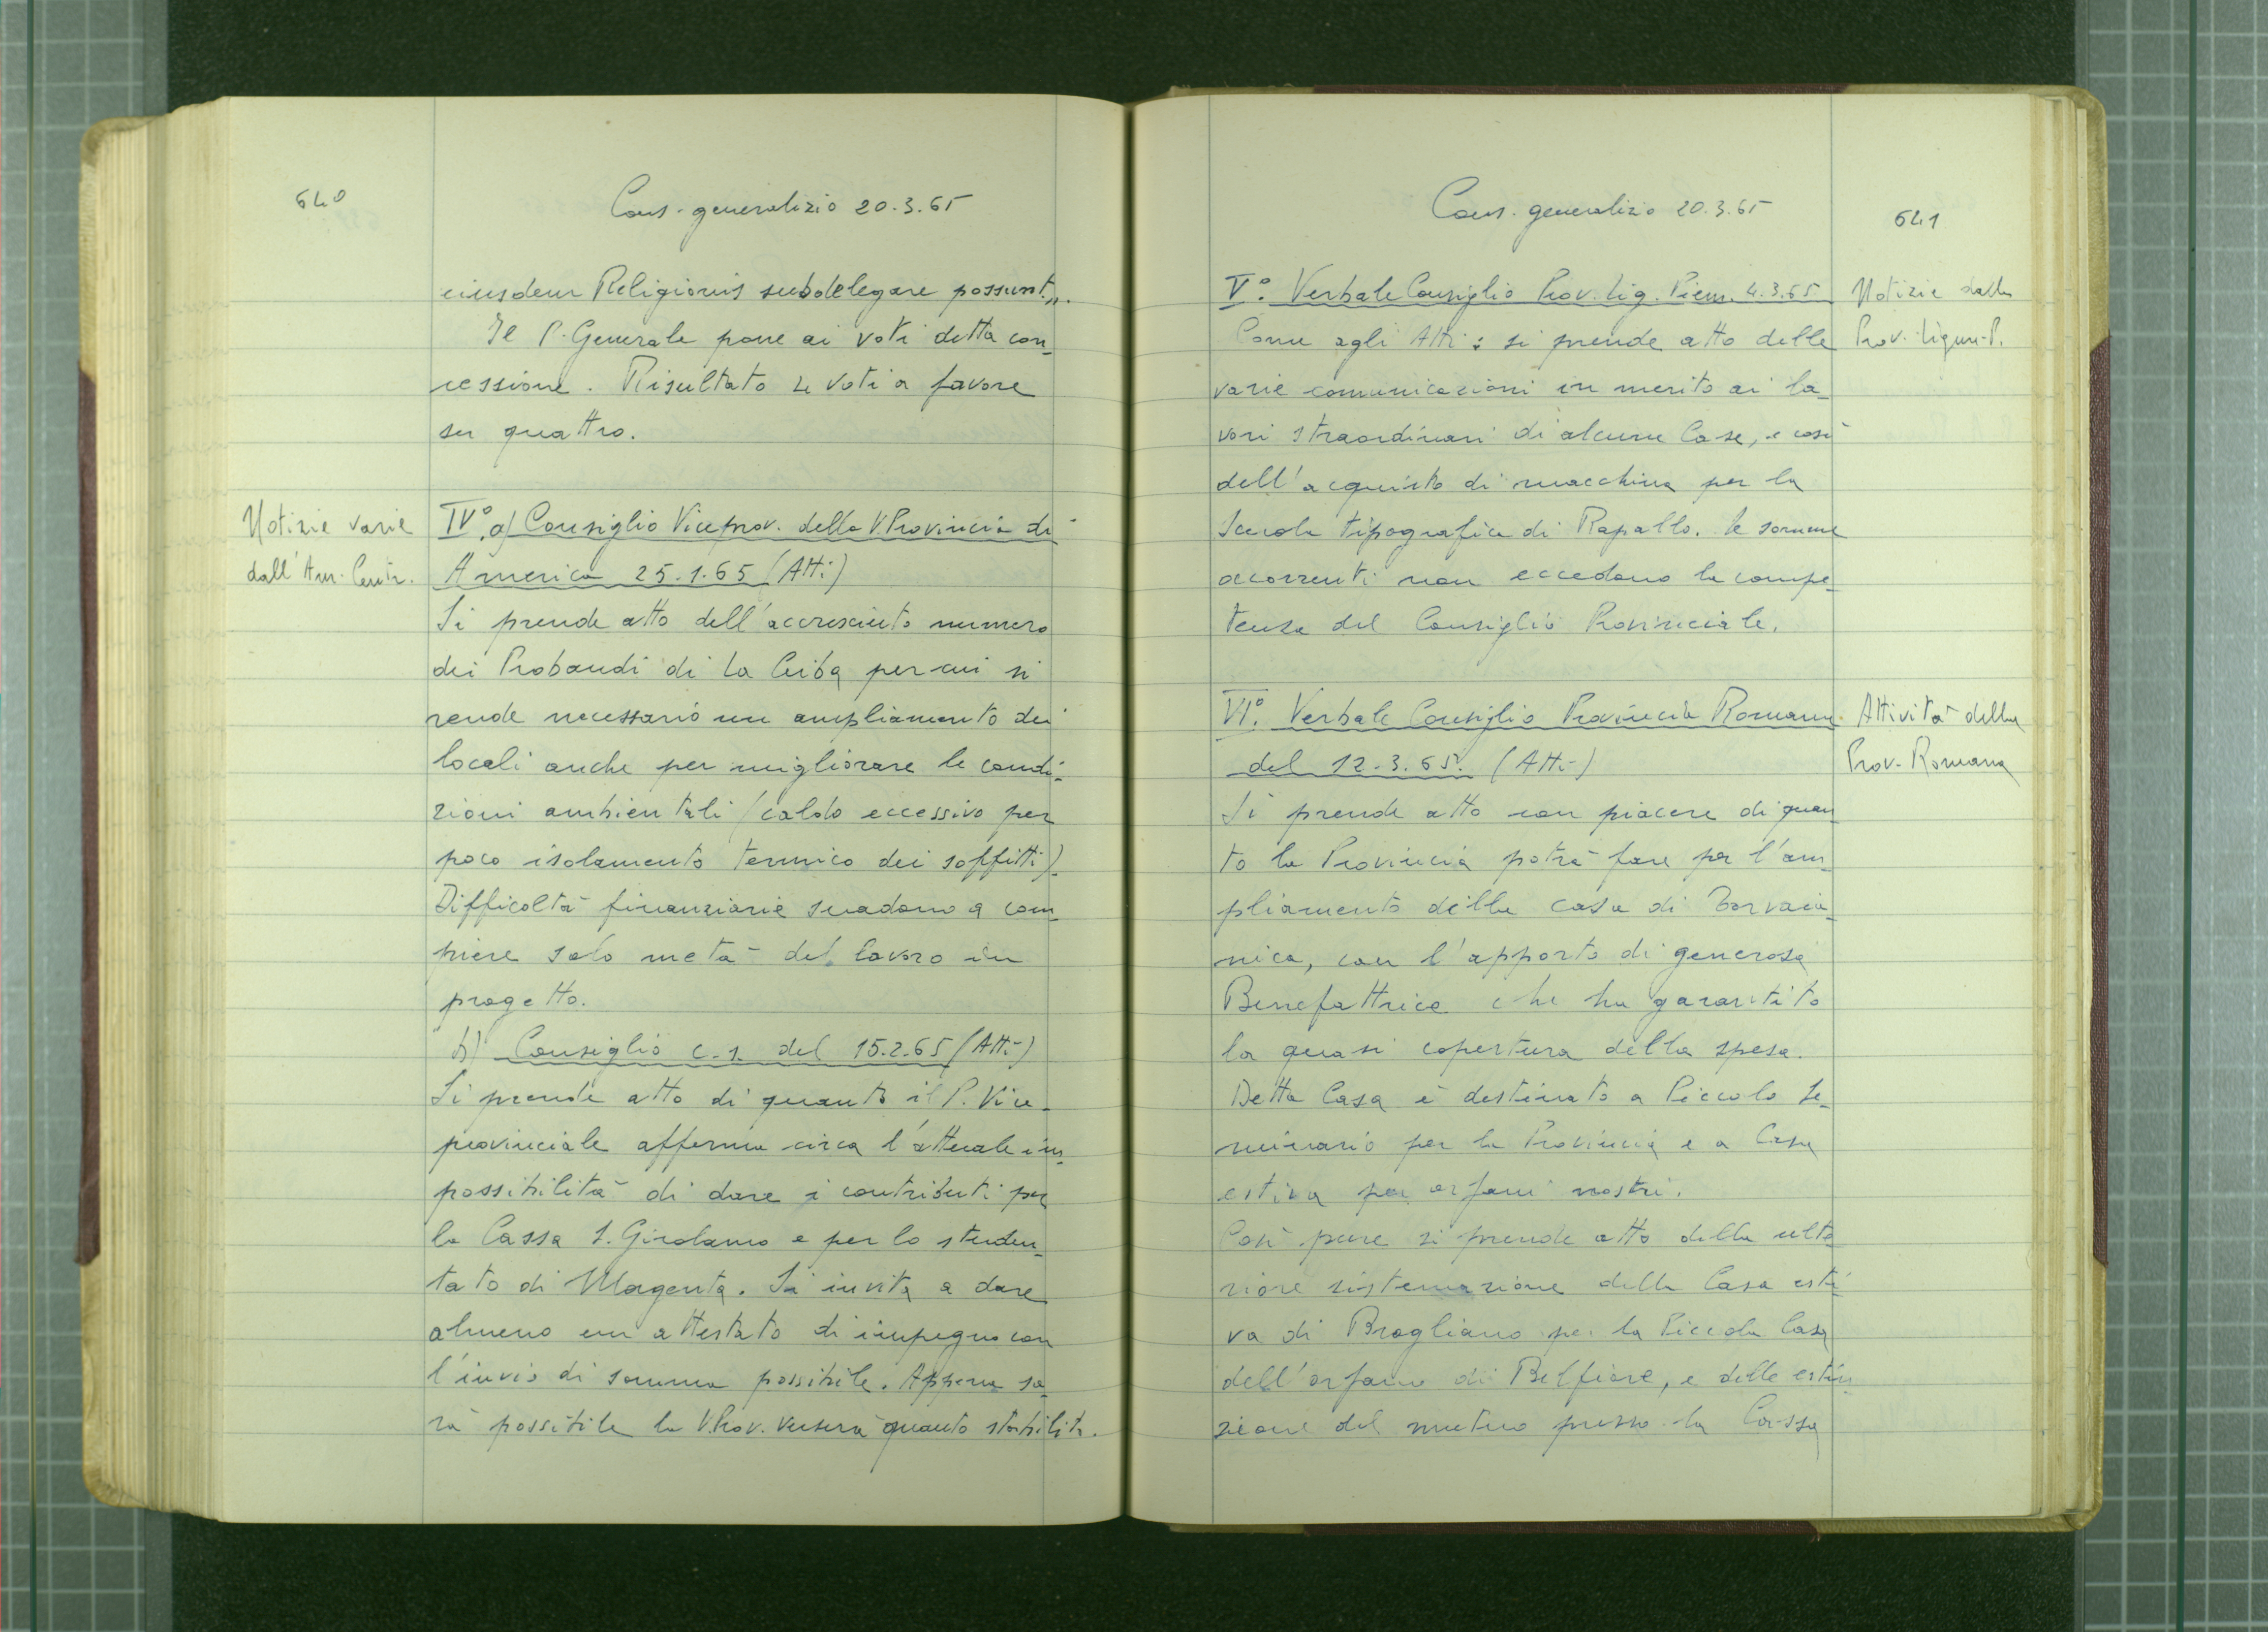 640
Cons. generalizio 20.3.65
eiusdem Religionis subdelegare possunt„.
Il P. Generale pone ai voti detta con-
cessione. Risultato 4 voti a favore
su quattro.
Notizie varie
dall'Am. Centr.
IV°. a) Consiglio Viceprov. della V.Provincia di
America 25.1.65 (Atti)
Si prende atto dell'accresciuto numero
dei Probandi di La Ceiba per cui si
rende necessario un ampliamento dei
locali anche per migliorare le condi-
zioni ambientali (caldo eccessivo per
poco isolamento termico dei soffitti).
Difficoltà finanziarie suadono a com-
piere solo metà del lavoro in
progetto.
b) Consiglio c.s. del 15.2.65 (Atti)
Si prende atto di quanto il P. Vice-
provinciale afferma circa l'attuale im-
possibilità di dare i contributi per
la Cassa S. Girolamo e per lo studen-
tato di Magenta. Si invita a dare
almeno un attestato di impegno con
l'invio di somma possibile. Appena sa-
rà possibile la V.Prov. verserà quanto stabilito.
Cons. generalizio 20.3.65
641
V°. Verbale Consiglio Prov. Lig. Piem. 4.3.65
Notizie dalla
Prov. Ligure-P.
Come agli Atti: si prende atto delle
varie comunicazioni in merito ai la-
vori straordinari di alcune Case, e così
dell'acquisto di macchina per la
Scuola tipografica di Rapallo. Le somme
occorrenti non eccedono la compe-
tenza del Consiglio Provinciale.
VI°. Verbale Consiglio Provincia Romana
del 12.3.65. (Atti)
Attività della
Prov. Romana
Si prende atto con piacere di quan-
to la Provincia potrà fare per l'am-
pliamento della casa di Torvaia-
nica, con l'apporto di generosa
Benefattrice che ha garantito
la quasi copertura della spesa.
Detta Casa è destinata a Piccolo Se-
minario per la Provincia e a Casa
estiva per orfani nostri.
Così pure si prende atto della ulte-
riore sistemazione della Casa esti-
va di Brogliano per la Piccola Casa
dell'orfano di Belfiore, e della estin-
zione del mutuo presso la Cassa